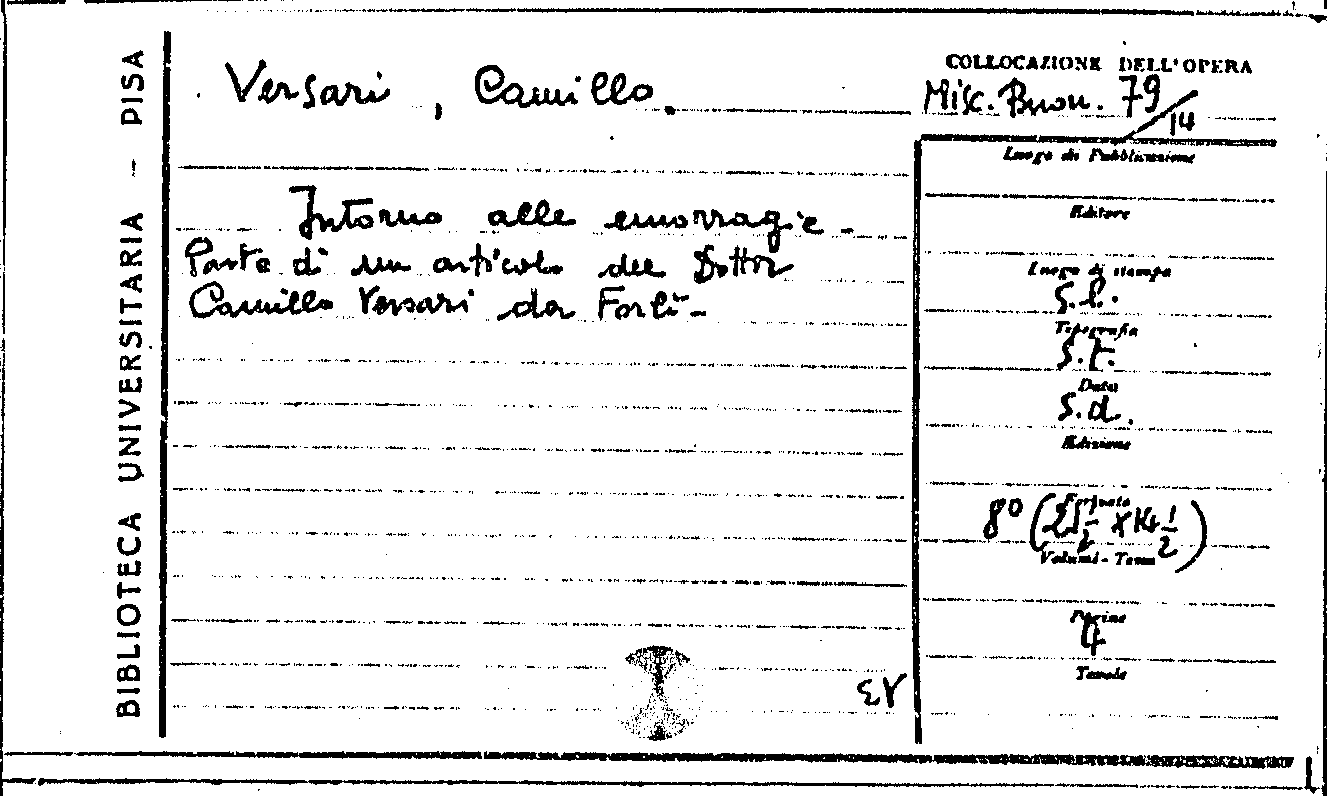 BIBLIOTECA UNIVERSITARIA - PISA
Versari, Camillo.
Intorno alle emorragie -
Parte di un articolo del Dottor
Camillo Versari da Forlì -
COLLOCAZIONE DELL'OPERA
Misc. Buon. 79/14
Luogo di Pubblicazione
Editore
Luogo di stampa
S.l.
Tipografia
S.t.
Data
S.d.
Edizione
Formato
8º (21 1/2 x 14 1/2)
Volumi - Tomi
Pagine
4
Tavole